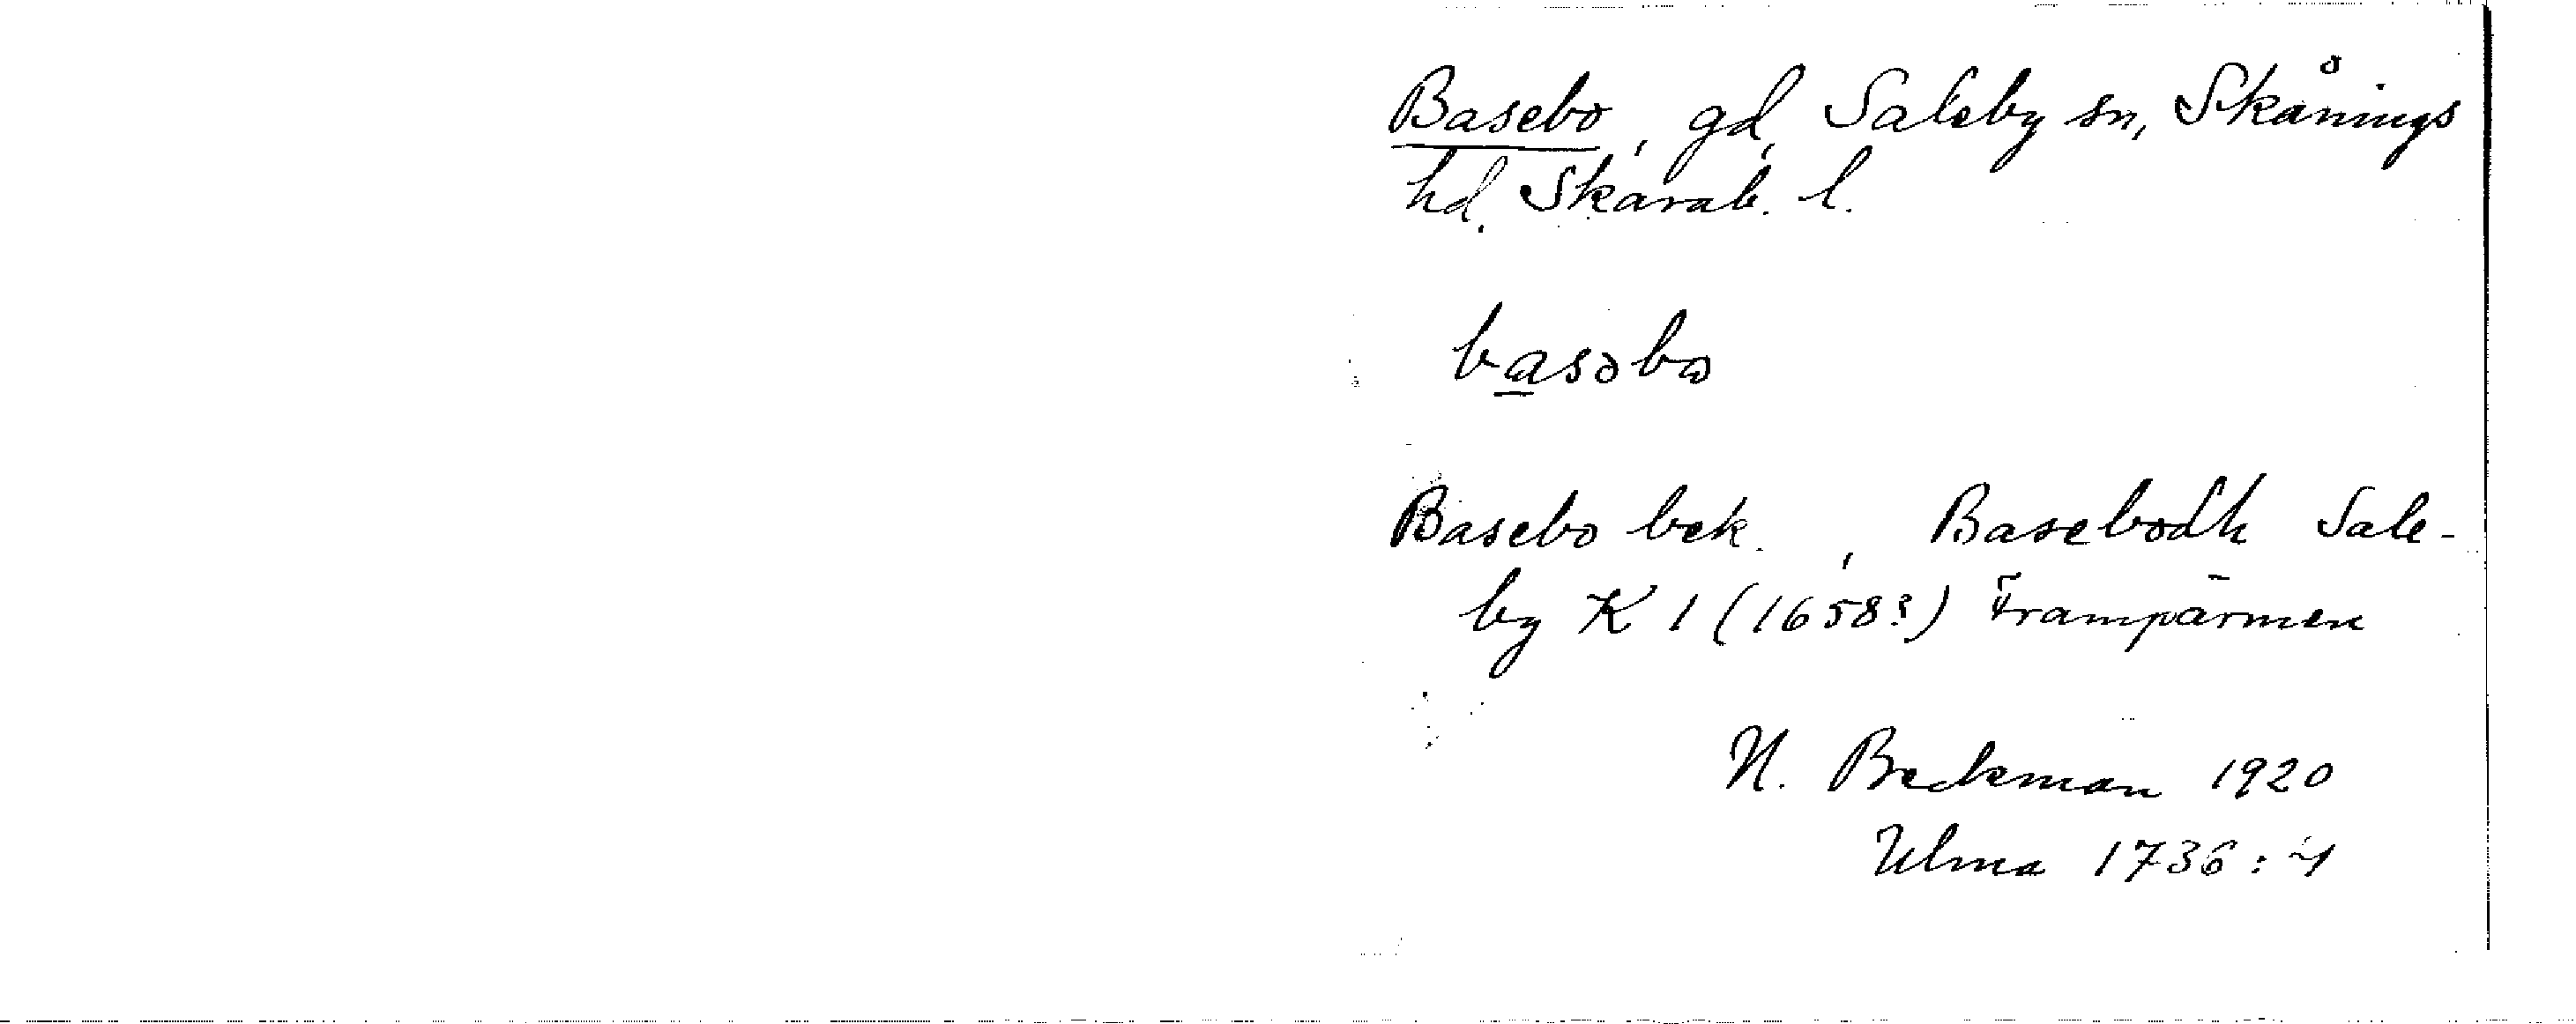 Basebo, gd, Saleby sn, Skånings
hd, Skarab. l.
basəbω
Basebo bek. , Basebodh Sale-
by K 1 (1658?) Frampärmen
N. Beckman 1920
Ulma 1736:4